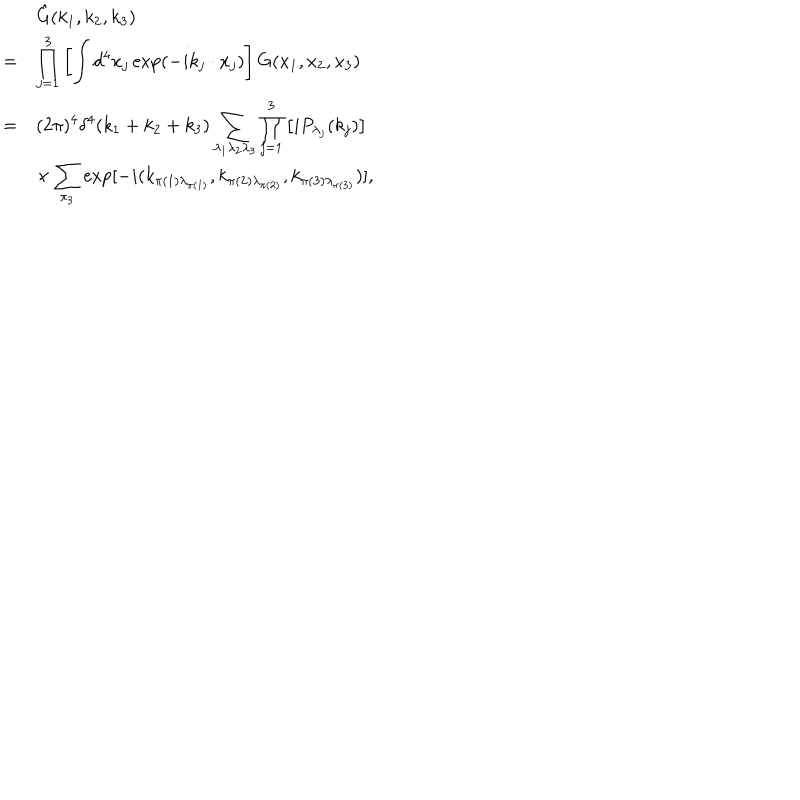 \hat{G}(k_1, k_2, k_3)
= \prod_{j=1}^{3} \left[ \int d^4 x_j \exp(-i k_j \cdot x_j) \right] G(x_1, x_2, x_3)
= (2\pi)^4 \delta^4(k_1 + k_2 + k_3) \sum_{\lambda_1 \lambda_2 \lambda_3} \prod_{j=1}^{3} \left[ i P_{\lambda_j}(k_j) \right]
\times \sum_{\pi_3} \exp[-i(k_{\pi(1)\lambda_{\pi(1)}}, k_{\pi(2)\lambda_{\pi(2)}}, k_{\pi(3)\lambda_{\pi(3)}})],